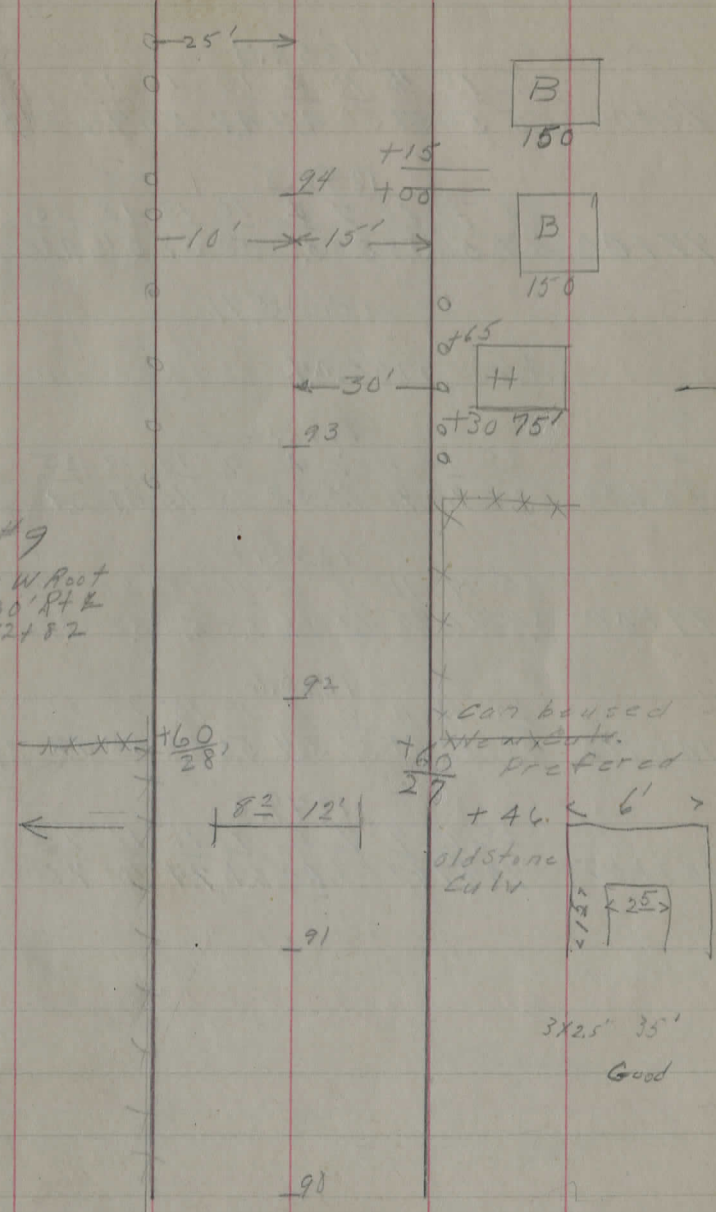 25'
B
150
+15
94
+00
10' 15'
B
150
+65
30'
H
+30 75'
93
#9
W Root
0' Rt
2+82
92
Can be used
New Culv.
Prefered
+60
28'
+60
27
8 2 12'
+46.
6'
old Stone
Culv
2 5
91
3x2.5' 35'
Good
90